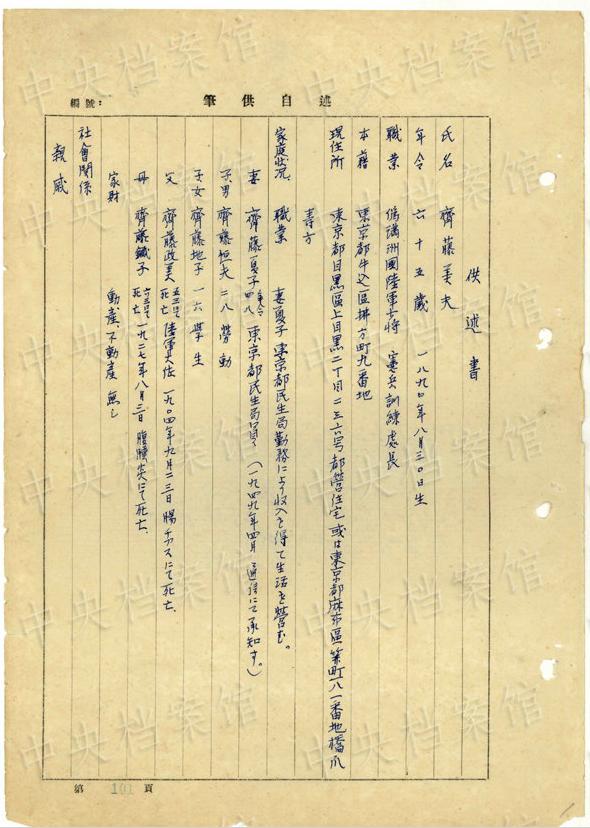 述自供筆
編號：
供述書
氏名 齊藤美夫
年令 六十五歳 一八九〇年八月三〇日生
職業 偽満洲國陸軍少将 憲兵訓練處長
本籍 東京都牛込區拂方町九番地
現住所 東京都目黒區上目黒二丁目二三六六号都営住宅 或は東京都麻布區 町八一番地橋爪
方
家庭状况 職業 妻夏子東京都民生局勤務により収入を得て生活を営む。
妻 齊藤夏子 四八 東京都民生局 （一九四九年四月通信にて承知す。）
子男 齊藤恒夫 二八 勞動
子女 齊藤地子 一六 學生
父 齊藤政美 五三にて死亡 陸軍大佐 一九〇四年九月二三日腸チブスにて死亡、
母 齊藤鐵子 六三にて死亡 一九二七年八月三日 腹膜炎にて死亡、
家財 動産、不動産 無し
社會関係
親戚
第 101 頁
中央档案馆